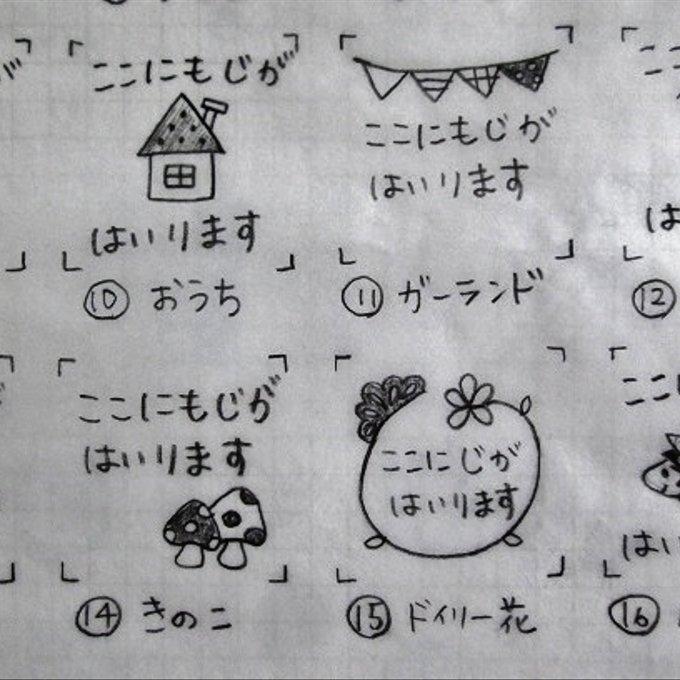 ここにもじが
はいります
⑩ おうち
ここにもじが
はいります
⑪ ガーランド
⑫
ここにもじが
はいります
⑭ きのこ
ここにじが
はいります
⑮ ドイリー花
⑯